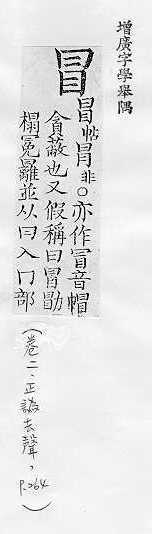 增廣字學舉隅
冒
冒帖冐非○亦作冒音帽
貪蔽也又假稱曰冒勖
榻冕㒼並从冃入冂部
(卷二、正譌去聲,p.264)